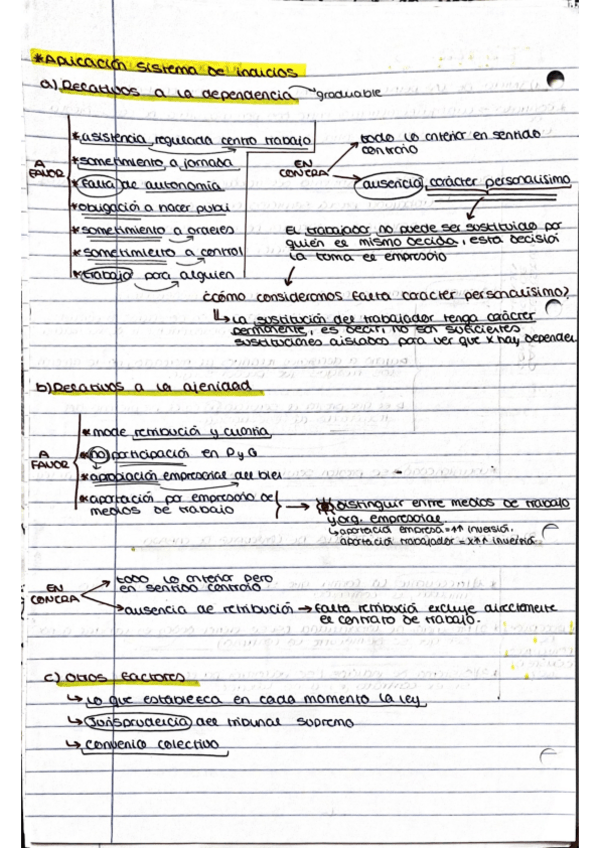 *Aplicación sistema de indicios
a) Relativos a la dependencia → graduable
A FAVOR
*asistencia regulada centro trabajo
*sometimiento a jornada
*Falta de autonomía
*obligación a hacer
*sometimiento a órdenes
*sometimiento a control
*trabajo para alguien
EN CONTRA
todo lo anterior en sentido contrario
ausencia carácter personalísimo
El trabajador no puede ser sustituido por
quien él mismo decida, esta decisión
la toma el empresario
¿cómo consideramos falta carácter personalísimo?
↳ la sustitución del trabajador tenga carácter
permanente, es decir, no son suficientes
sustituciones aisladas para ver que x hay depender
b) Relativos a la ajenidad
A FAVOR
*modo retribución y cuantía
*no participación en P y G
*apropiación empresarial del bien
*aportación por empresario de
medios de trabajo
→ * distinguir entre medios de trabajo
y org. empresarial
↳ aportación empresa = ↑↑ inversión.
aportación trabajador = x↑↑ inversión.
EN CONTRA
todo lo anterior pero
en sentido contrario
ausencia de retribución → Falta retribución excluye directamente
el contrato de trabajo.
c) Otros factores
↳ lo que establezca en cada momento la ley
↳ Jurisprudencia del tribunal supremo
↳ convenio colectivo